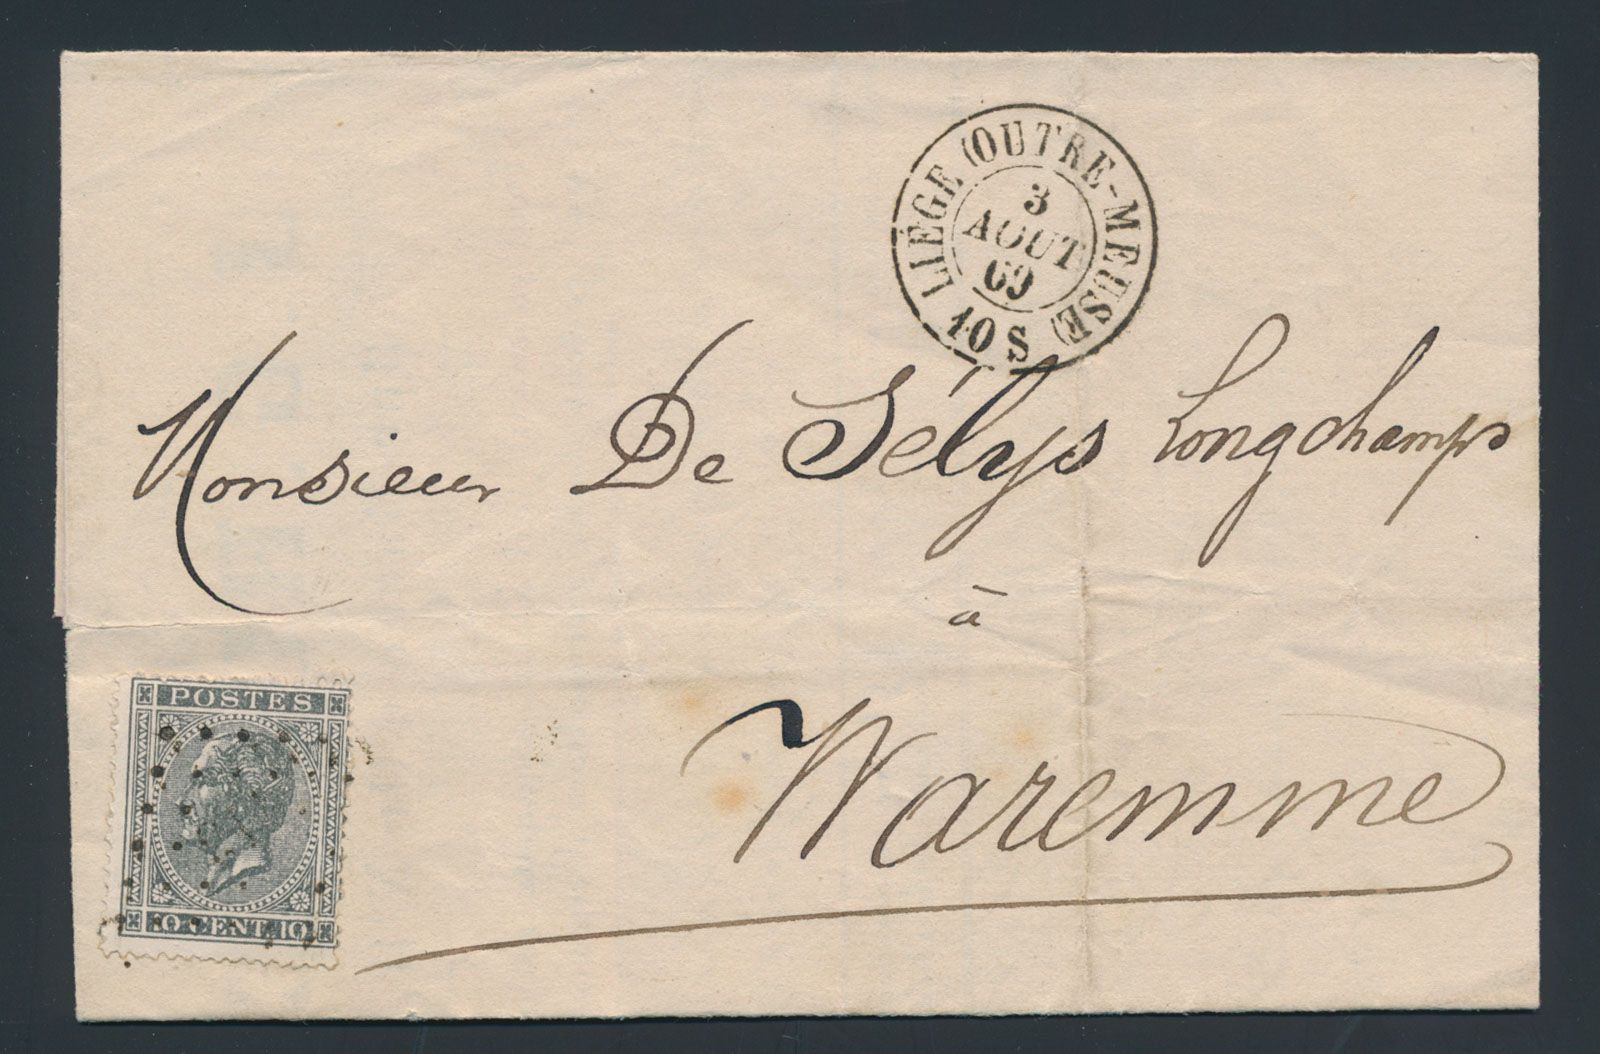 LIÉGE (OUTRE-MEUSE)
3
AOUT
69
10 S
Monsieur De Sélys Longchamps
à
Waremme
POSTES
10 CENT 10